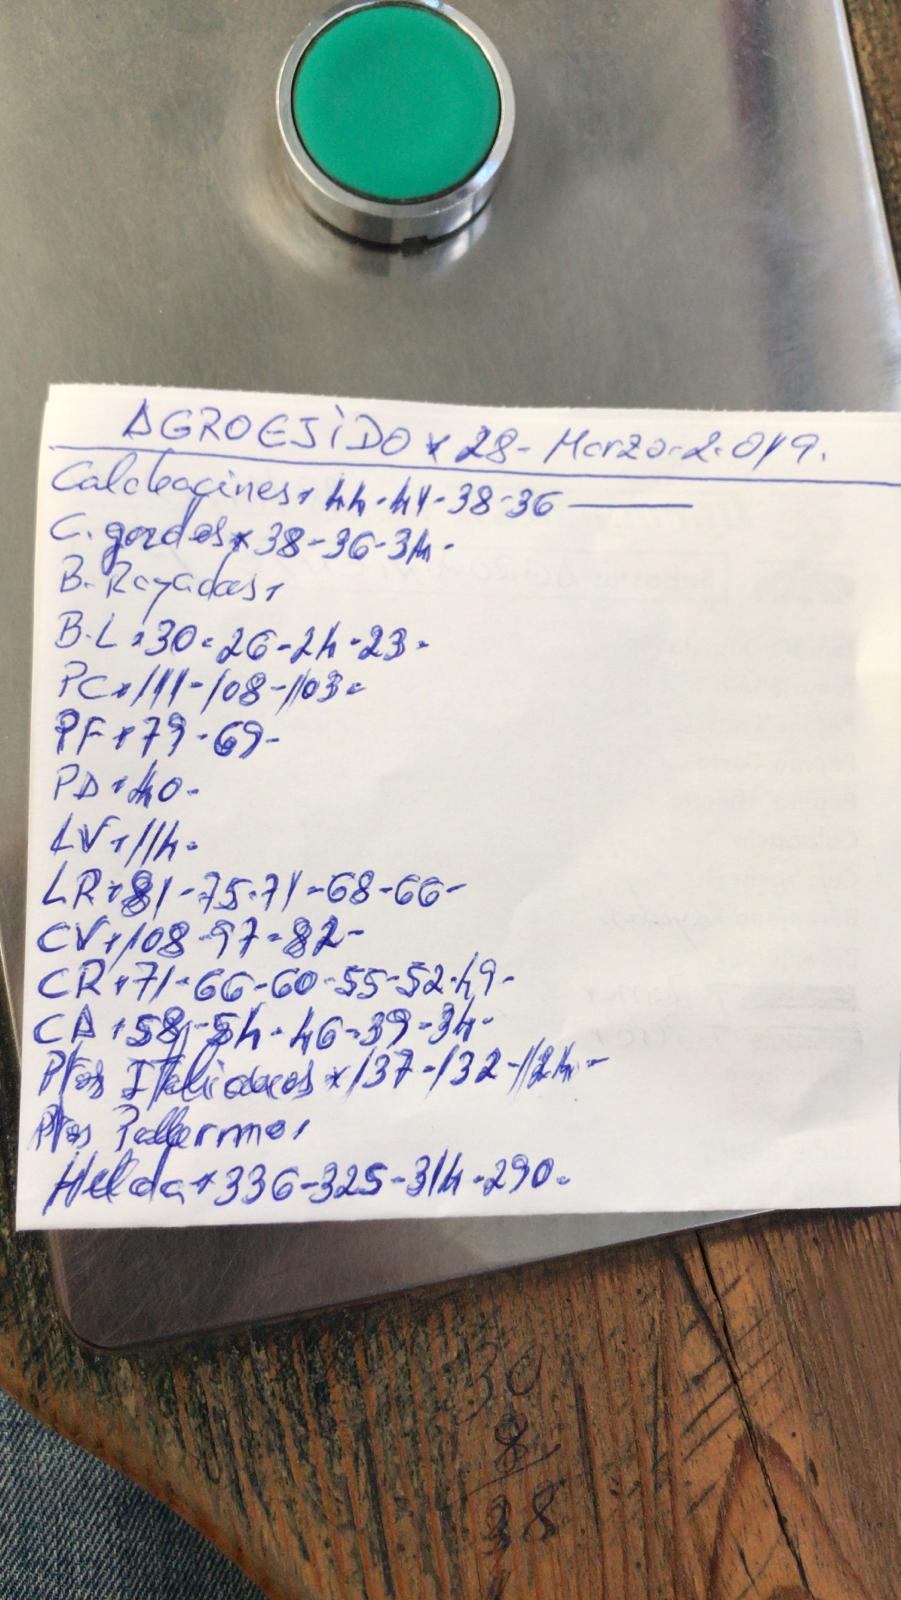 AGROEJIDO x 28- Marzo-2.019.
Calabacines x 44-41-38-36 ——
C. gordos x 38-36-34-
B. Rayadas x
B.L x 30-26-24-23-
PC x 111-108-103-
PF x 79-69-
PD x 40-
LV x 114-
LR x 81-75-71-68-66-
CV x 108-97-82-
CR x 71-66-60-55-52-49-
CA x 58-54-46-39-34-
Ptos Italianos x 137-132-124-
Ptos Pallermo x
Helda x 336-325-314-290-
30
8
38